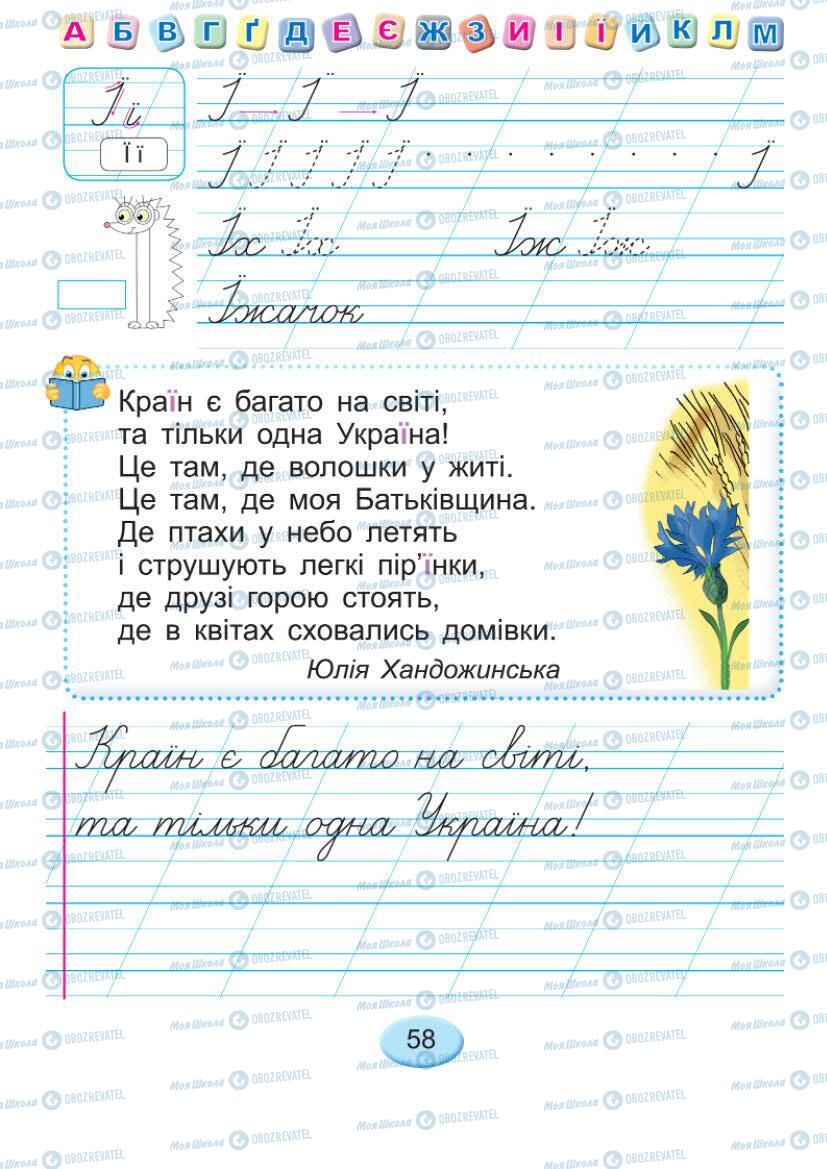 А Б В Г Ґ Д Е Є Ж З И І Ї Й К Л М
Її
Ї Ї Ї
Її
Ї Ї Ї Ї Ї Ї
Їх Їх Їж Їж
Їжачок
Країн є багато на світі,
та тільки одна Україна!
Це там, де волошки у житі.
Це там, де моя Батьківщина.
Де птахи у небо летять
і струшують легкі пір’їнки,
де друзі горою стоять,
де в квітах сховались домівки.
Юлія Хандожинська
Країн є багато на світі,
та тільки одна Україна!
58
МояШкола OBOZREVATEL